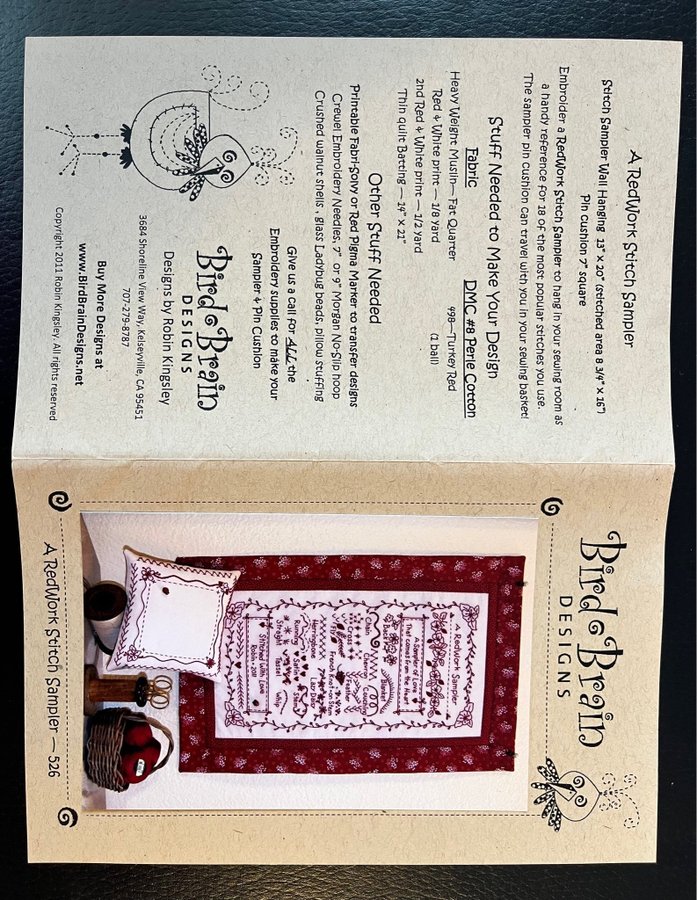 A RedWork Stitch Sampler
Stitch Sampler Wall Hanging 13" x 20" (stitched area 8 3/4" x 16")
Pin cushion 7" square
Embroider a RedWork Stitch Sampler to hang in your sewing room as
a handy reference for 18 of the most popular stitches you use.
The sampler pin cushion can travel with you in your sewing basket!
Stuff Needed to Make Your Design
Fabric
Heavy Weight Muslin— Fat Quarter
Red & White print — 1/8 yard
2nd Red & White print — 1/2 yard
Thin quilt Batting — 14" X 21"
DMC #8 Perle Cotton
498—Turkey Red
(1 ball)
Other Stuff Needed
Printable Fabri-Solvy or Red Pigma Marker to transfer designs
Crewel Embroidery Needles, 7" or 9" Morgan No-Slip hoop
Crushed walnut shells, glass Ladybug beads, pillow stuffing
Give us a call for ALL the
Embroidery supplies to make your
Sampler & Pin Cushion
Bird Brain
DESIGNS
Designs by Robin Kingsley
3684 Shoreline View Way, Kelseyville, CA 95451
707-279-8787
Buy More Designs at
www.BirdBrainDesigns.net
Copyright 2011 Robin Kingsley. All rights reserved
Bird Brain
DESIGNS
A RedWork Sampler
A Sampler of Love
that comes from the Heart
Back
Blanket
Chain
Couching
Cross
Feather
French Knot
Stem
Herringbone
Lazy Daisy
Running
Satin
Straight
Tassel
Whip
Stitched with Love
Robin • 2011
A RedWork Stitch Sampler — 526